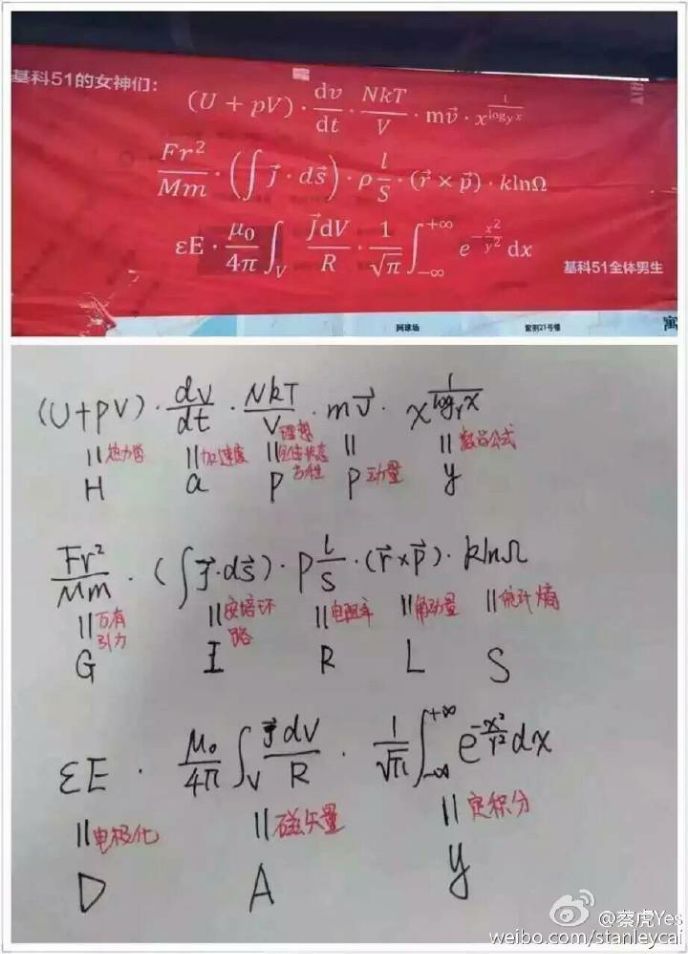 基科51的女神们:
(U + pV) · dv/dt · NkT/V · mv⃗ · x^(1/log_y x)
Fr²/Mm · (∫ j⃗ · ds⃗) · ρ l/S · (r⃗ × p⃗) · klnΩ
εE · μ₀/4π ∫_V j⃗dV/R · 1/√π ∫_{-∞}^{+∞} e^(-x²/y²) dx
基科51全体男生
网球场
紫荆21号楼
寓
(U+pV) · dv/dt · NkT/V · mv⃗ · x^(1/log_y x)
||热力学 ||加速度 ||理想气体状态方程 || ||数学公式
H a P P 动量 y
Fr²/Mm · (∫ j⃗·ds⃗) · ρ l/S · (r⃗×p⃗) · klnΩ
||万有引力 ||安培环路 ||电阻率 ||角动量 ||统计熵
G I R L S
εE · μ₀/4π ∫_V j⃗dV/R · 1/√π ∫_{-∞}^{+∞} e^(-x²/y²) dx
||电极化 ||磁矢量 ||定积分
D A y
@蔡虎Yes
weibo.com/stanleycai